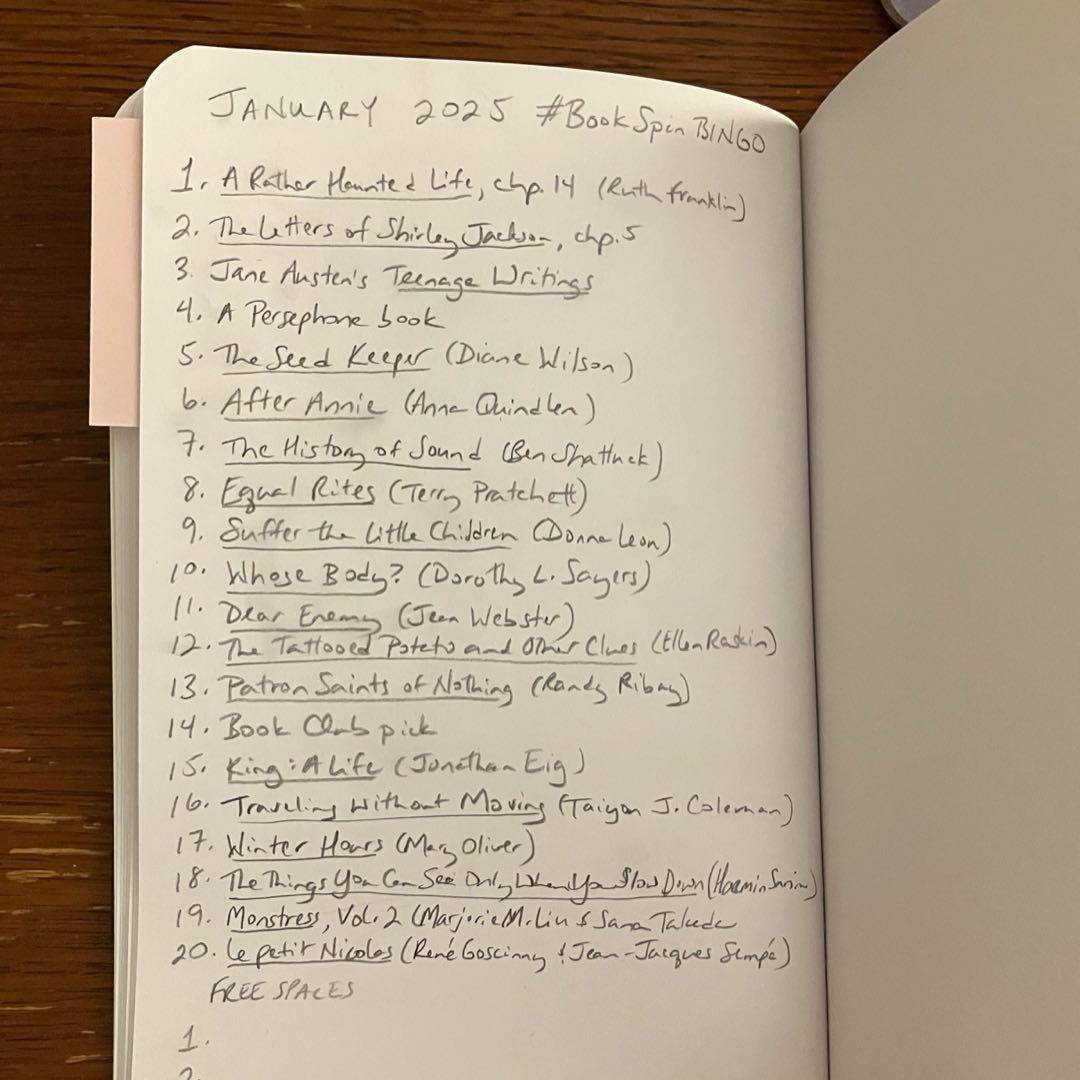 JANUARY 2025 #BookSpinBINGO
1. A Rather Haunted Life, chp. 14 (Ruth Franklin)
2. The Letters of Shirley Jackson, chp. 5
3. Jane Austen's Teenage Writings
4. A Persephone book
5. The Seed Keeper (Diane Wilson)
6. After Annie (Anna Quindlen)
7. The History of Sound (Ben Shattuck)
8. Equal Rites (Terry Pratchett)
9. Suffer the Little Children (Donna Leon)
10. Whose Body? (Dorothy L. Sayers)
11. Dear Enemy (Jean Webster)
12. The Tattooed Potato and Other Clues (Ellen Raskin)
13. Patron Saints of Nothing (Randy Ribay)
14. Book Club pick
15. King: A Life (Jonathan Eig)
16. Traveling Without Moving (Taiyon J. Coleman)
17. Winter Hours (Mary Oliver)
18. The Things You Can See Only When You Slow Down (Haemin Sunim)
19. Monstress, Vol. 2 (Marjorie M. Liu & Sana Takeda
20. Le petit Nicolas (René Goscinny & Jean-Jacques Sempé)
FREE SPACES
1.
2.